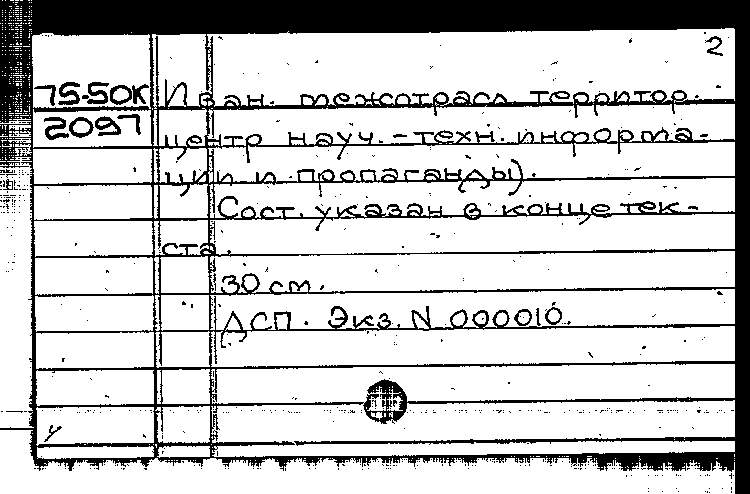 2
75-50К Иван. межотрасл. территор.
2097 центр науч.-техн. информа-
ции и пропаганды).
Сост. указан в конце тек-
ста.
30 см.
ДСП. Экз. N 000010.
у